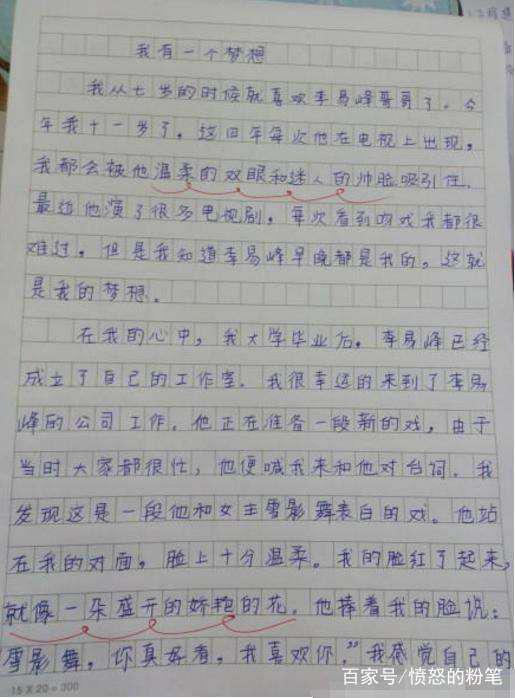 我有一个梦想
我从七岁的时候就喜欢李易峰哥哥了。今
年我十一岁了。这四年每次他在电视上出现，
我都会被他温柔的双眼和迷人的帅脸吸引住。
最近他演了很多电视剧，每次看到吻戏我都很
难过。但是我知道李易峰早晚都是我的，这就
是我的梦想。
在我的心中，我大学毕业后。李易峰已经
成立了自己的工作室。我很幸运的来到了李易
峰的公司工作。他正在准备一段新的戏，由于
当时大家都很忙，他便喊我来和他对台词。我
发现这是一段他和女主雪影舞表白的戏。他站
在我的对面，脸上十分温柔。我的脸红了起来，
就像一朵盛开的娇艳的花。他捧着我的脸说：
雪影舞，你真好看，我喜欢你。”我感觉自己的
15 X 20 = 300
百家号/愤怒的粉笔